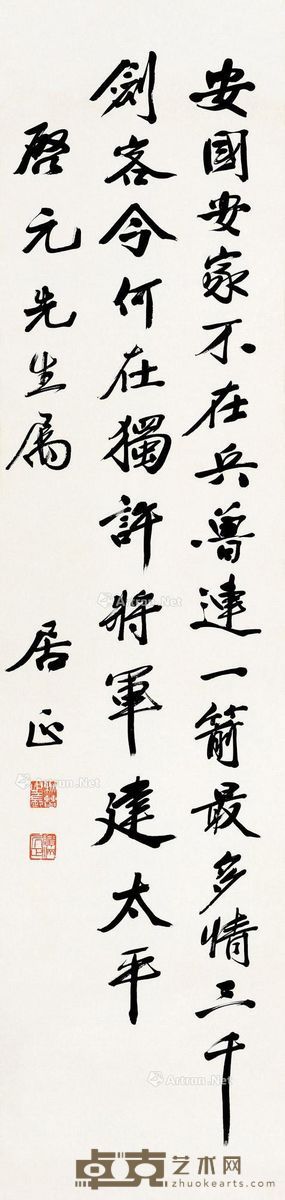 安國安家不在兵魯連一箭最多情三千
劍客今何在獨許將軍建太平
啓元先生屬
居正
Artron.Net
Artron.Net
Artron.Net
卓克艺术网
zhuokearts.com